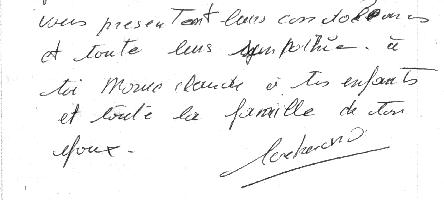 vous presentent leurs condoleances
et toute leurs sympathie. à
toi Marie claude à tes enfants
et toute la famille de ton
epoux.